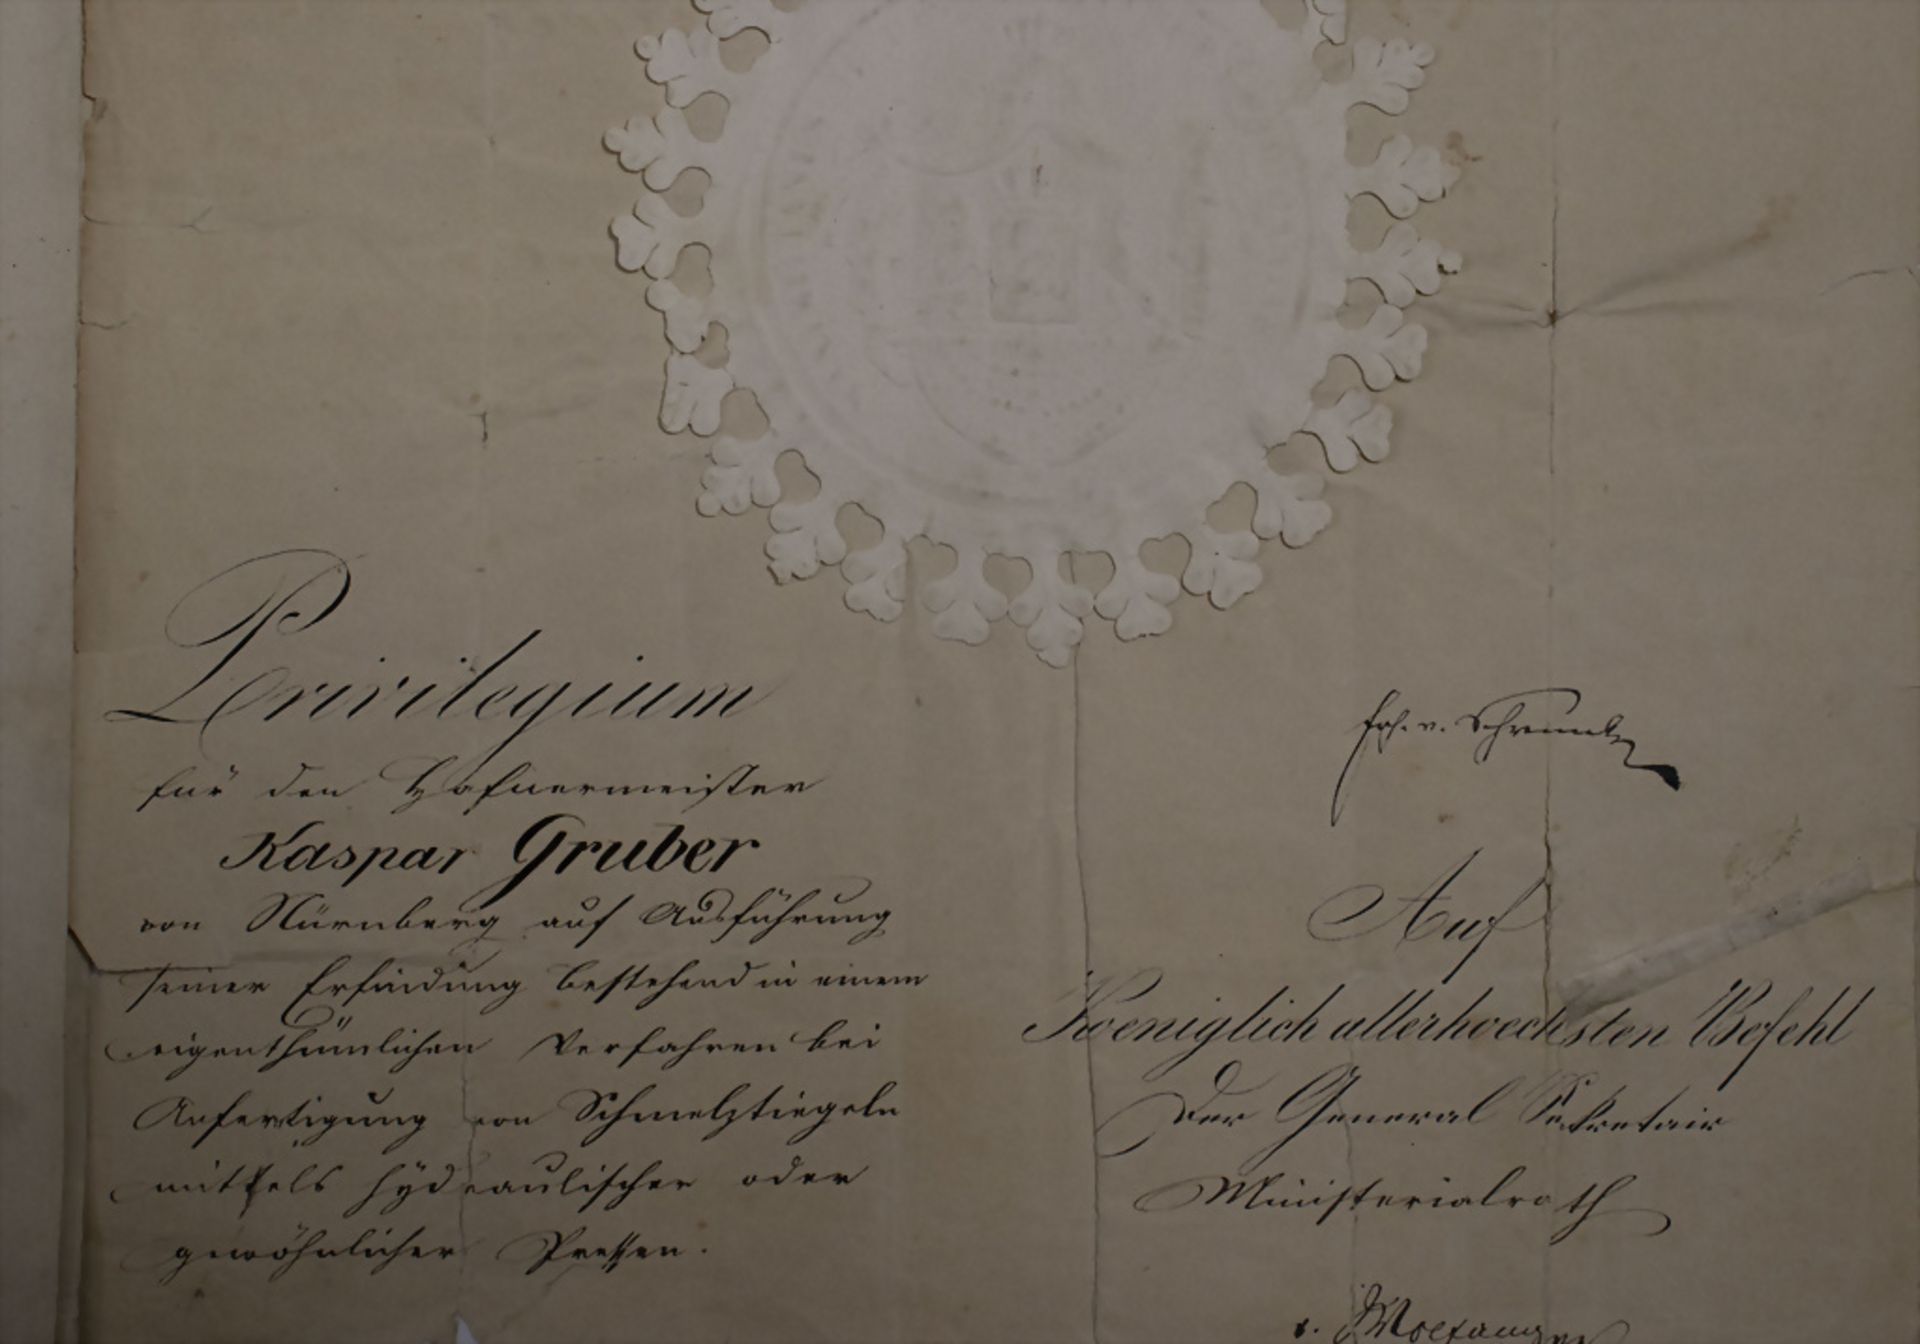 Privilegium
für den Hafnermeister
Kaspar Gruber
von Nürnberg auf Ausführung
seiner Erfindung bestehend in einem
eigenthümlichen Verfahren bei
Anfertigung von Schmelztiegeln
mittels hydraulischer oder
gewöhnlicher Pressen.
Frh. v. Schrenck
Auf
Koeniglich allerhoechsten Befehl
Der General Sekretair
Ministerialrath